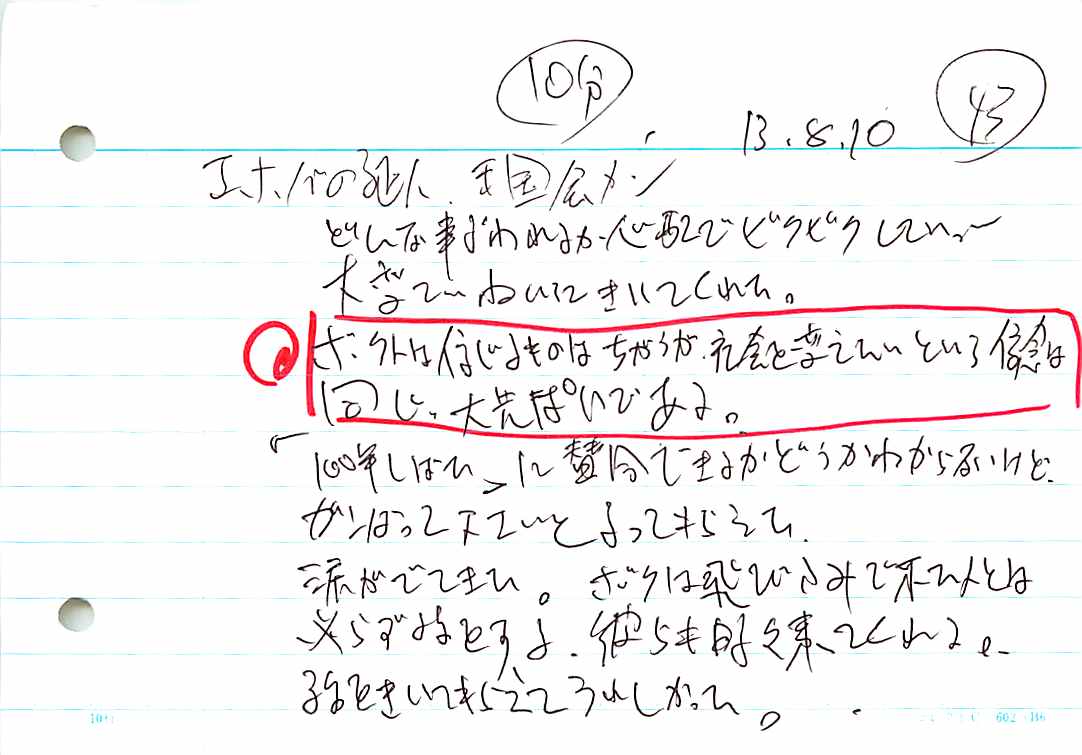 10分
43
13.8.10
エホバの証人 王国会カン
どんな事が われるか心配でビクビクしてい
大 ていねいにきいてくれた。
ボクトは信じるものはちがうが、社会を変えたいという信念は
同じ、大先ぱいである。
「100年しばた」に賛同できるかどうかわからないけど、
がんばって下さいと言ってもらえた、
涙がでてきた。ボクは飛びこみで来た人とは
必らず話をする、彼らも時々来てくれる。
話をきいてもらえてうれしかった。
602